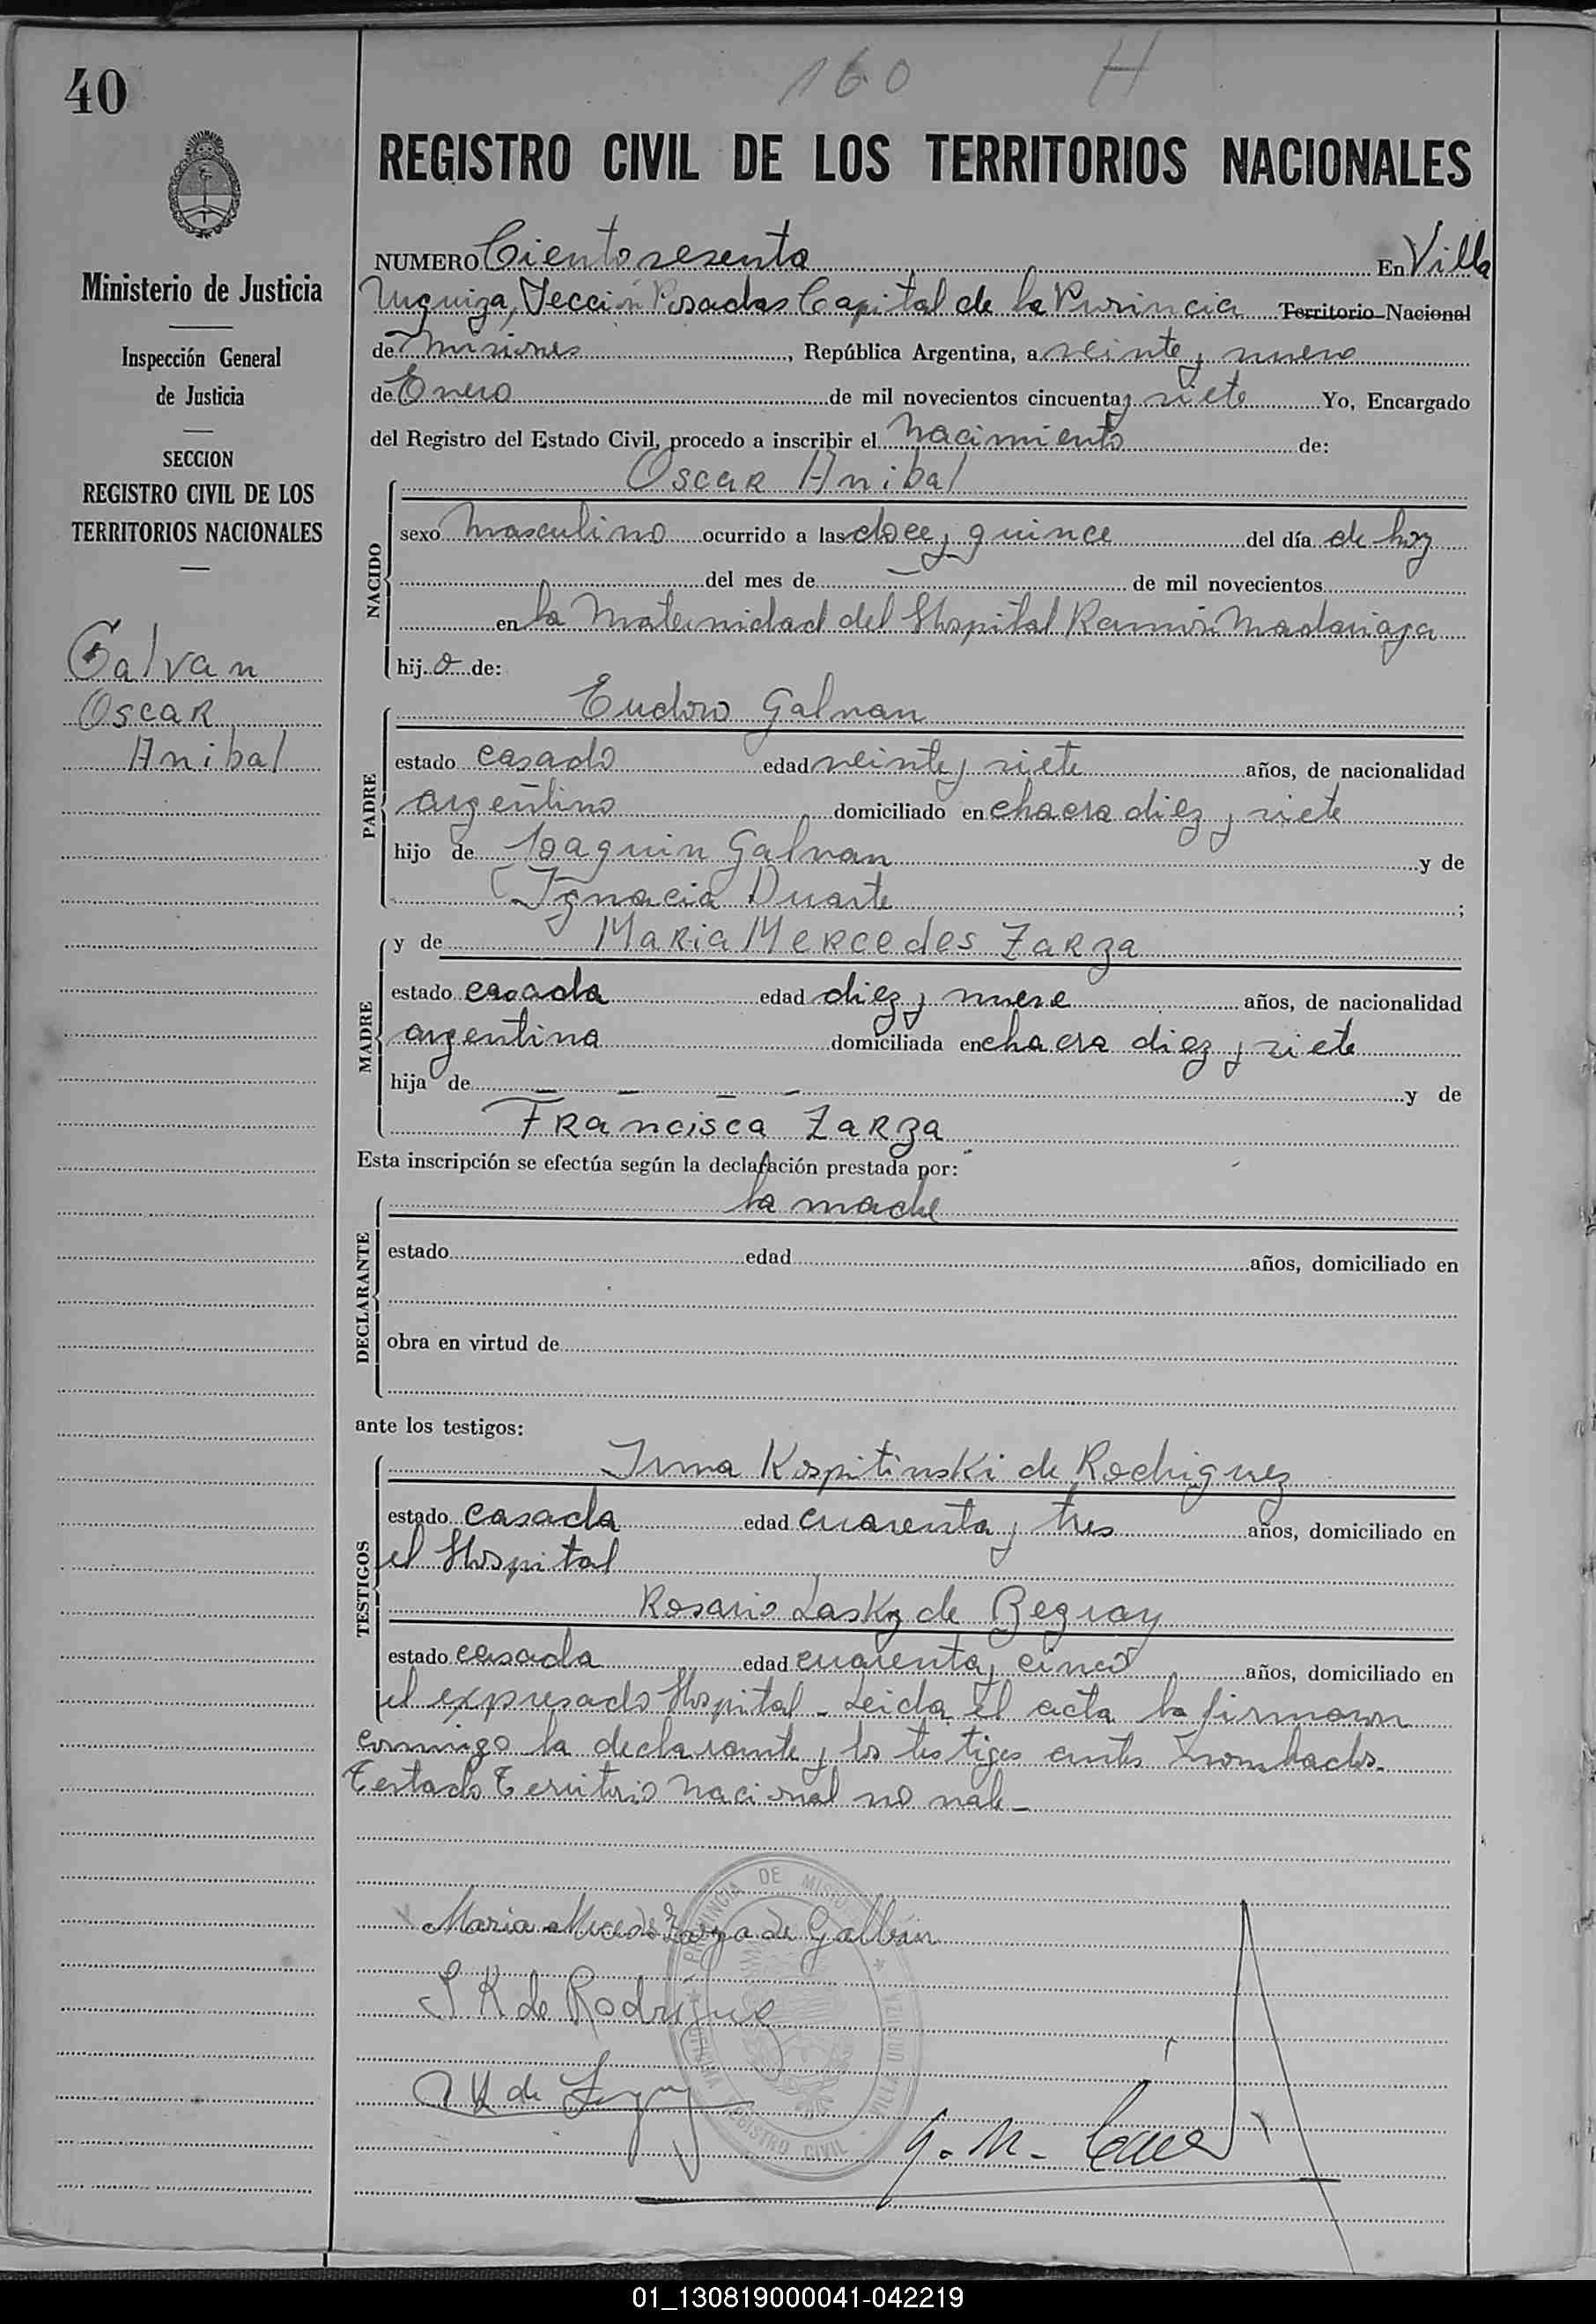 40
160 H
REGISTRO CIVIL DE LOS TERRITORIOS NACIONALES
Ministerio de Justicia
Inspección General
de Justicia
SECCION
REGISTRO CIVIL DE LOS
TERRITORIOS NACIONALES
Galvan
Oscar
Anibal
NUMERO Ciento sesenta En Villa
Urquiza, Sección Posadas Capital de la Provincia Territorio Nacional
de Misiones, República Argentina, a veinte y nueve
de Enero de mil novecientos cincuenta y siete Yo, Encargado
del Registro del Estado Civil, procedo a inscribir el nacimiento de:
Oscar Anibal
NACIDO
sexo Masculino ocurrido a las doce y quince del día de hoy
del mes de — de mil novecientos
en la Maternidad del Hospital Ramón Madariaga
hijo de:
PADRE
Eudoro Galvan
estado casado edad veinte y siete años, de nacionalidad
argentino domiciliado en chacra diez y siete
hijo de Joaquin Galvan y de
Ignacia Duarte ;
MADRE
y de Maria Mercedes Zarza
estado casada edad diez y nueve años, de nacionalidad
argentina domiciliada en chacra diez y siete
hija de — — — — y de
Francisca Zarza
Esta inscripción se efectúa según la declaración prestada por:
DECLARANTE
la madre
estado edad años, domiciliado en
obra en virtud de
ante los testigos:
TESTIGOS
Irma Kospitinski de Rodriguez
estado casada edad cuarenta y tres años, domiciliado en
el Hospital
Rosario Lasky de
estado casada edad cuarenta y cinco años, domiciliado en
el expresado Hospital - Leida el acta la firmaron
conmigo la declarante y los testigos antes nombrados.
Testado Territorio Nacional no vale -
Maria Mercedes Zarza de Galván
I K de Rodríguez
PROVINCIA DE MISIONES
VILLA URQUIZA
REGISTRO CIVIL
01_130819000041-042219